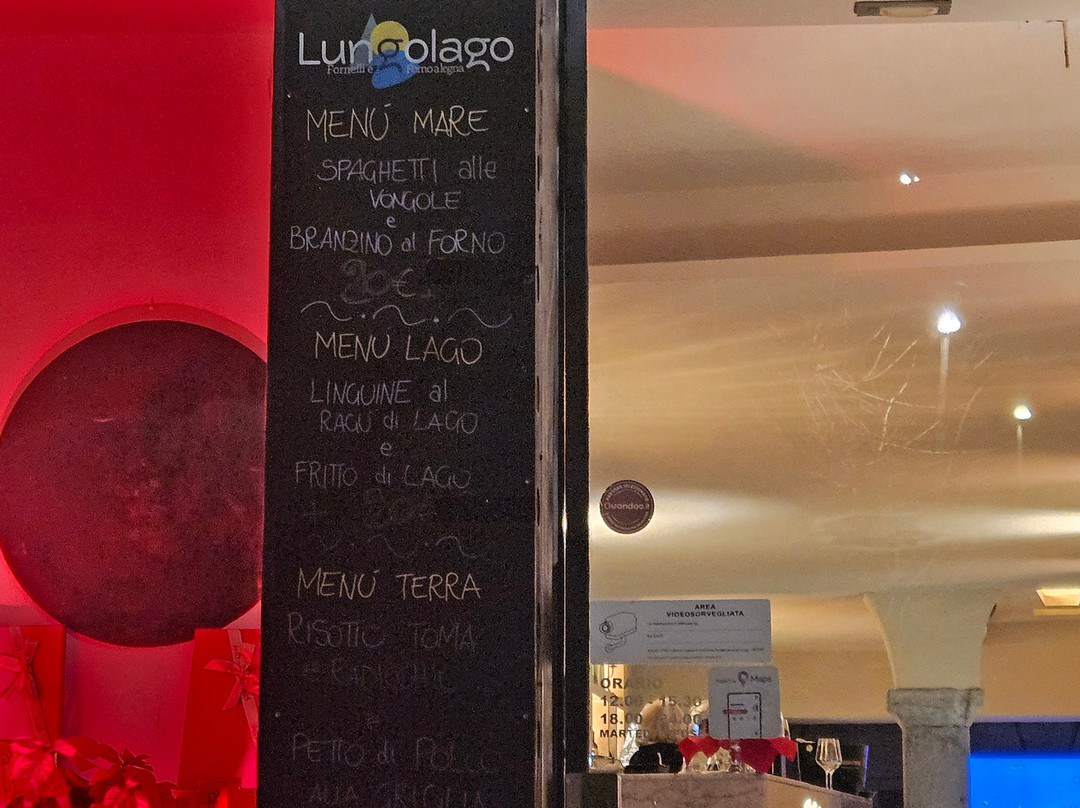 Lungolago
Fornelli e Forno a legna
MENÚ MARE
SPAGHETTI alle
VONGOLE
e
BRANZINO al FORNO
MENÚ LAGO
LINGUINE al
RAGÚ di LAGO
e
FRITTO di LAGO
MENÚ TERRA
RISOTTO TOMA
e
PETTO di POLLO
ALLA GRIGLIA
Quandoo.it
AREA
VIDEOSORVEGLIATA
Maps
ORARIO
12.00 - 15.30
18.00
MARTEDÌ